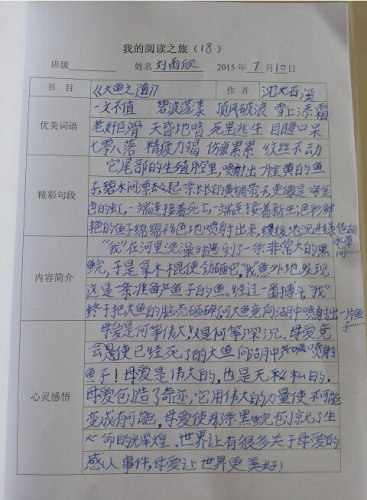 我的阅读之旅（18）
班级 姓名 刘雨欣 2015年7月10日
书目 《大鱼之道》 作者 沈石溪
优美词语
一文不值 碧波荡漾 顶风破浪 雪上添霜
老奸巨滑 天昏地暗 死里逃生 目瞪口呆
七零八落 精疲力竭 伤痕累累 纹丝不动
精彩句段
它尾部的生殖腔里，喷射出一片金黄的鱼
子，碧水间漂起一条长长的黄绸带，更像是一条金
色的虹，一端连接着死亡，一端连接着新生；色彩鲜
艳的鱼子绵绵不绝地喷射出来，缓缓地沉进绿色的水草
间……
内容简介
“我”在河里洗澡时遇到了一条非常大的黑
鲩，于是拿木棍使劲砸它，“我”意外地发现
这是一条准备产鱼子的鱼，经过一番搏斗，“我”
终于把大鱼的脑壳砸碎，可大鱼竟向湖中喷射出一片鱼
子……
心灵感悟
母爱是何等伟大，又是何等深沉，母爱竟
会是使已经死了的大鱼向湖中喷射
鱼子！母爱是伟大的，也是无私的，
母爱创造了奇迹，它用伟大的力量使不可能
变成有可能，母爱使那条黑鲩创造了生
命的光辉。世界上有很多关于母爱的
感人事件，母爱让世界更美好！